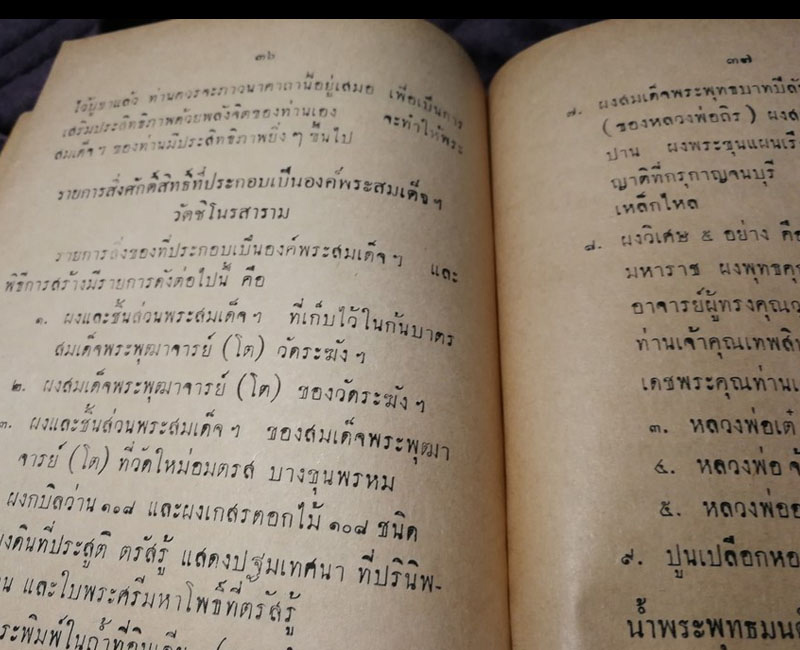 ๓๖
ใจผู้ขาแล้ว ท่านควรจะภาวนาคาถานี้อยู่เสมอ เพื่อเป็นการ
เสริมประสิทธิภาพด้วยพลังจิตของท่านเอง จะทำให้พระ
สมเด็จฯ ของท่านมีประสิทธิภาพยิ่ง ๆ ขึ้นไป
รายการสิ่งศักดิ์สิทธิ์ที่ประกอบเป็นองค์พระสมเด็จฯ
วัดชิโนรสาราม
รายการสิ่งของที่ประกอบเป็นองค์พระสมเด็จฯ และ
พิธีการสร้างมีรายการดังต่อไปนี้ คือ
๑. ผงและชิ้นส่วนพระสมเด็จฯ ที่เก็บไว้ในก้นบาตร
สมเด็จพระพุฒาจารย์ (โต) วัดระฆังฯ
๒. ผงสมเด็จพระพุฒาจารย์ (โต) ของวัดระฆังฯ
๓. ผงและชิ้นส่วนพระสมเด็จฯ ของสมเด็จพระพุฒา
จารย์ (โต) ที่วัดใหม่อมตรส บางขุนพรหม
ผงกบิลว่าน ๑๐๘ และผงเกสรดอกไม้ ๑๐๘ ชนิด
งดินที่ประสูติ ตรัสรู้ แสดงปฐมเทศนา ที่ปรินิพ-
น และใบพระศรีมหาโพธิ์ที่ตรัสรู้
ระพิมพ์ในถ้ำที่อินเดีย
๓๗
๗. ผงสมเด็จพระพุทธบาทปิลั
(ของหลวงพ่อถิร) ผงส
ปาน ผงพระขุนแผนเรื
ญาติที่กรุกาญจนบุรี
เหล็กไหล
๘. ผงวิเศษ ๕ อย่าง คือ
มหาราช ผงพุทธคุ
อาจารย์ผู้ทรงคุณว
ท่านเจ้าคุณเทพสิท
เดชพระคุณท่านเ
๓. หลวงพ่อเต๋
๔. หลวงพ่อ จั
๕. หลวงพ่ออ
๙. ปูนเปลือกหอ
น้ำพระพุทธมนต์